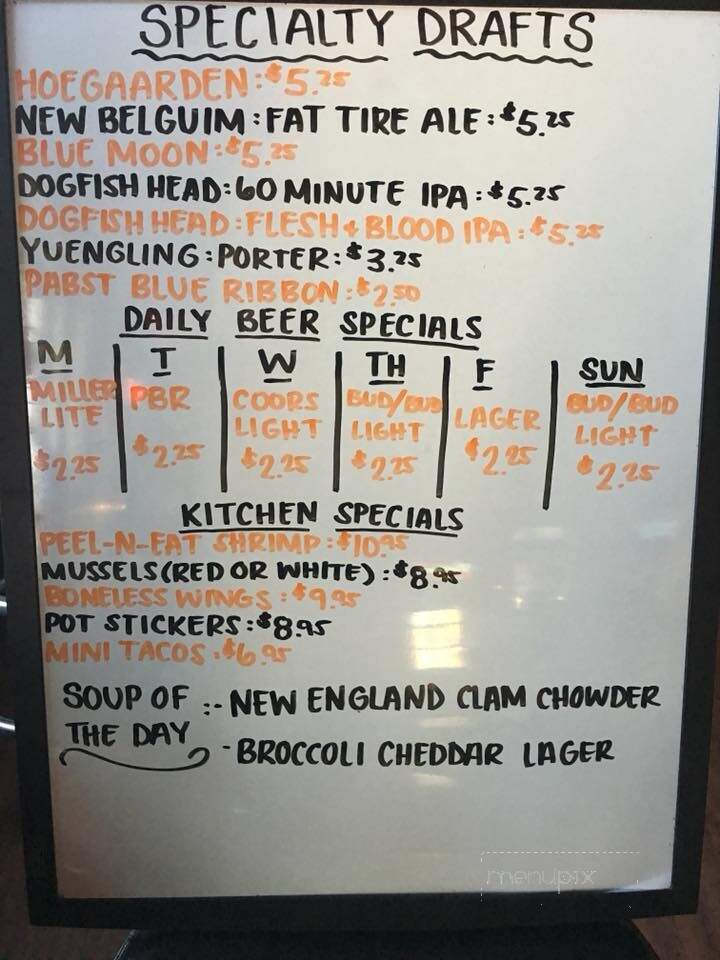 SPECIALTY DRAFTS
HOEGAARDEN: $5.25
NEW BELGUIM: FAT TIRE ALE: $5.25
BLUE MOON: $5.25
DOGFISH HEAD: 60 MINUTE IPA: $5.25
DOGFISH HEAD: FLESH & BLOOD IPA: $5.25
YUENGLING: PORTER: $3.25
PABST BLUE RIBBON: $2.50
DAILY BEER SPECIALS
M T W TH F SUN
MILLER LITE $2.25
PBR $2.25
COORS LIGHT $2.25
BUD/BUD LIGHT $2.25
LAGER $2.25
BUD/BUD LIGHT $2.25
KITCHEN SPECIALS
PEEL-N-EAT SHRIMP: $10.95
MUSSELS (RED OR WHITE): $8.95
BONELESS WINGS: $9.95
POT STICKERS: $8.95
MINI TACOS: $6.95
SOUP OF THE DAY :- NEW ENGLAND CLAM CHOWDER
- BROCCOLI CHEDDAR LAGER
menupix